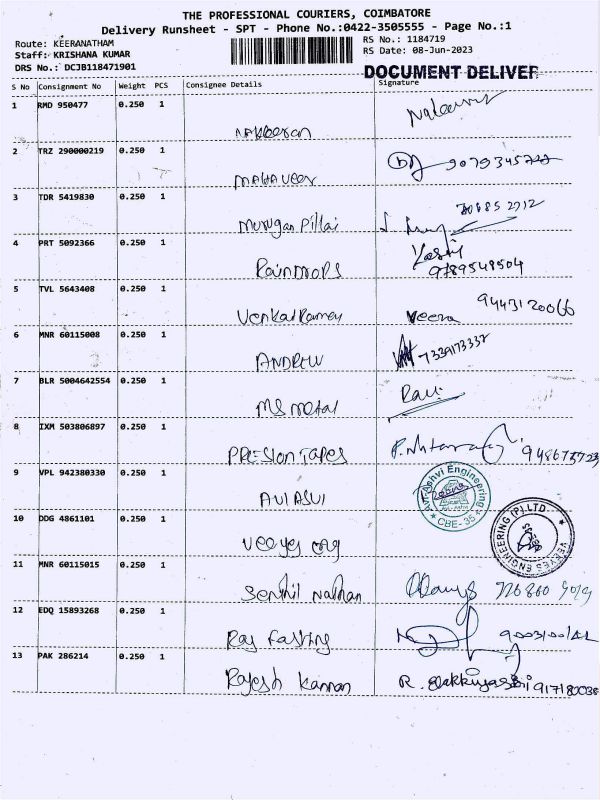 THE PROFESSIONAL COURIERS, COIMBATORE
Delivery Runsheet - SPT - Phone No.:0422-3505555 - Page No.:1
Route: KEERANATHAM
Staff: KRISHANA KUMAR
DRS No.: DCJB118471901
RS No.: 1184719
RS Date: 08-Jun-2023
DOCUMENT DELIVER
S No Consignment No Weight PCS Consignee Details Signature
1 RMD 950477 0.250 1
Nakkeeran
2 TRZ 290000219 0.250 1
MAHAVEER
3 TDR 5419830 0.250 1
Murugan Pillai
4 PRT 5092366 0.250 1
RAINDROPS 9789548504
5 TVL 5643408 0.250 1
Venkat Ramey Veera 9443120066
6 MNR 60115008 0.250 1
ANDREW 7339173337
7 BLR 5004642554 0.250 1
MS metal Ravi
8 IXM 503806897 0.250 1
PRESION TAPES
9 VPL 942380330 0.250 1
AVI ASVI
Avi-Ashvi Engineering
CBE-35
10 DDG 4861101 0.250 1
Veeyes eng
VEEYES ENGINEERING (P).LTD
11 MNR 60115015 0.250 1
Senthil Nathan
12 EDQ 15893268 0.250 1
Raj
13 PAK 286214 0.250 1
Rajesh Kannan R.